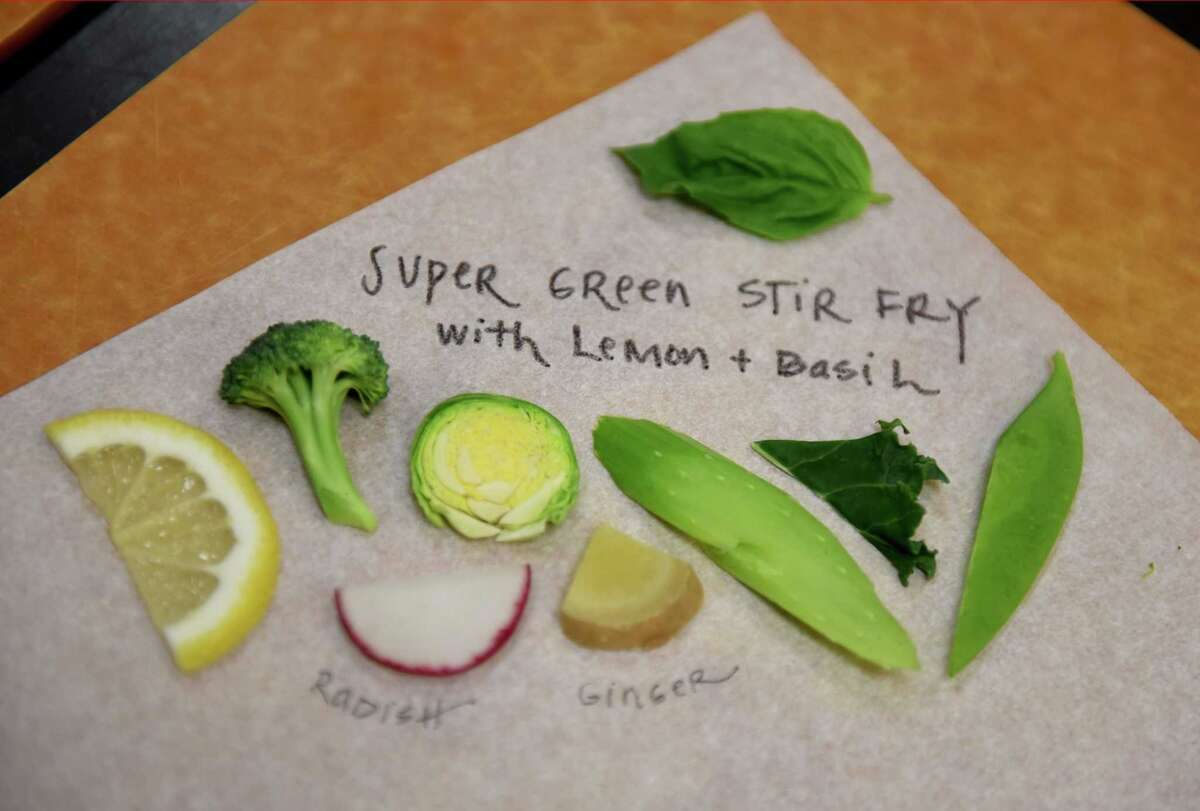 SUPER GREEN STIR FRY
with Lemon + Basil
RADISH
GINGER